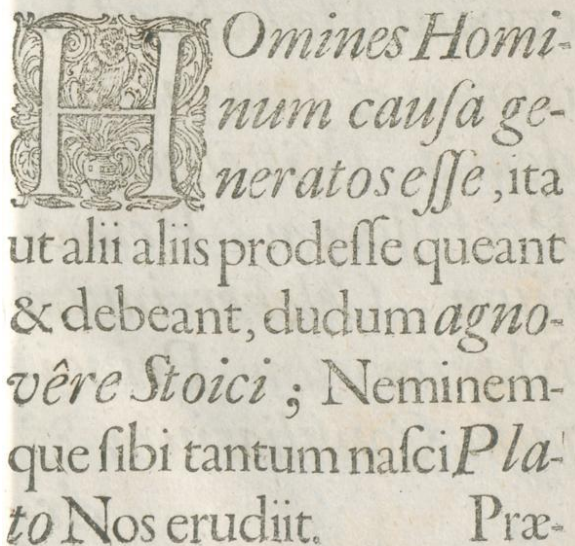 HOmines Homi-
num cauſa ge-
neratos eſſe, ita
ut alii aliis prodeſſe queant
& debeant, dudum agno-
vêre Stoici ; Neminem-
que ſibi tantum naſci Pla-
to Nos erudiit. Præ-